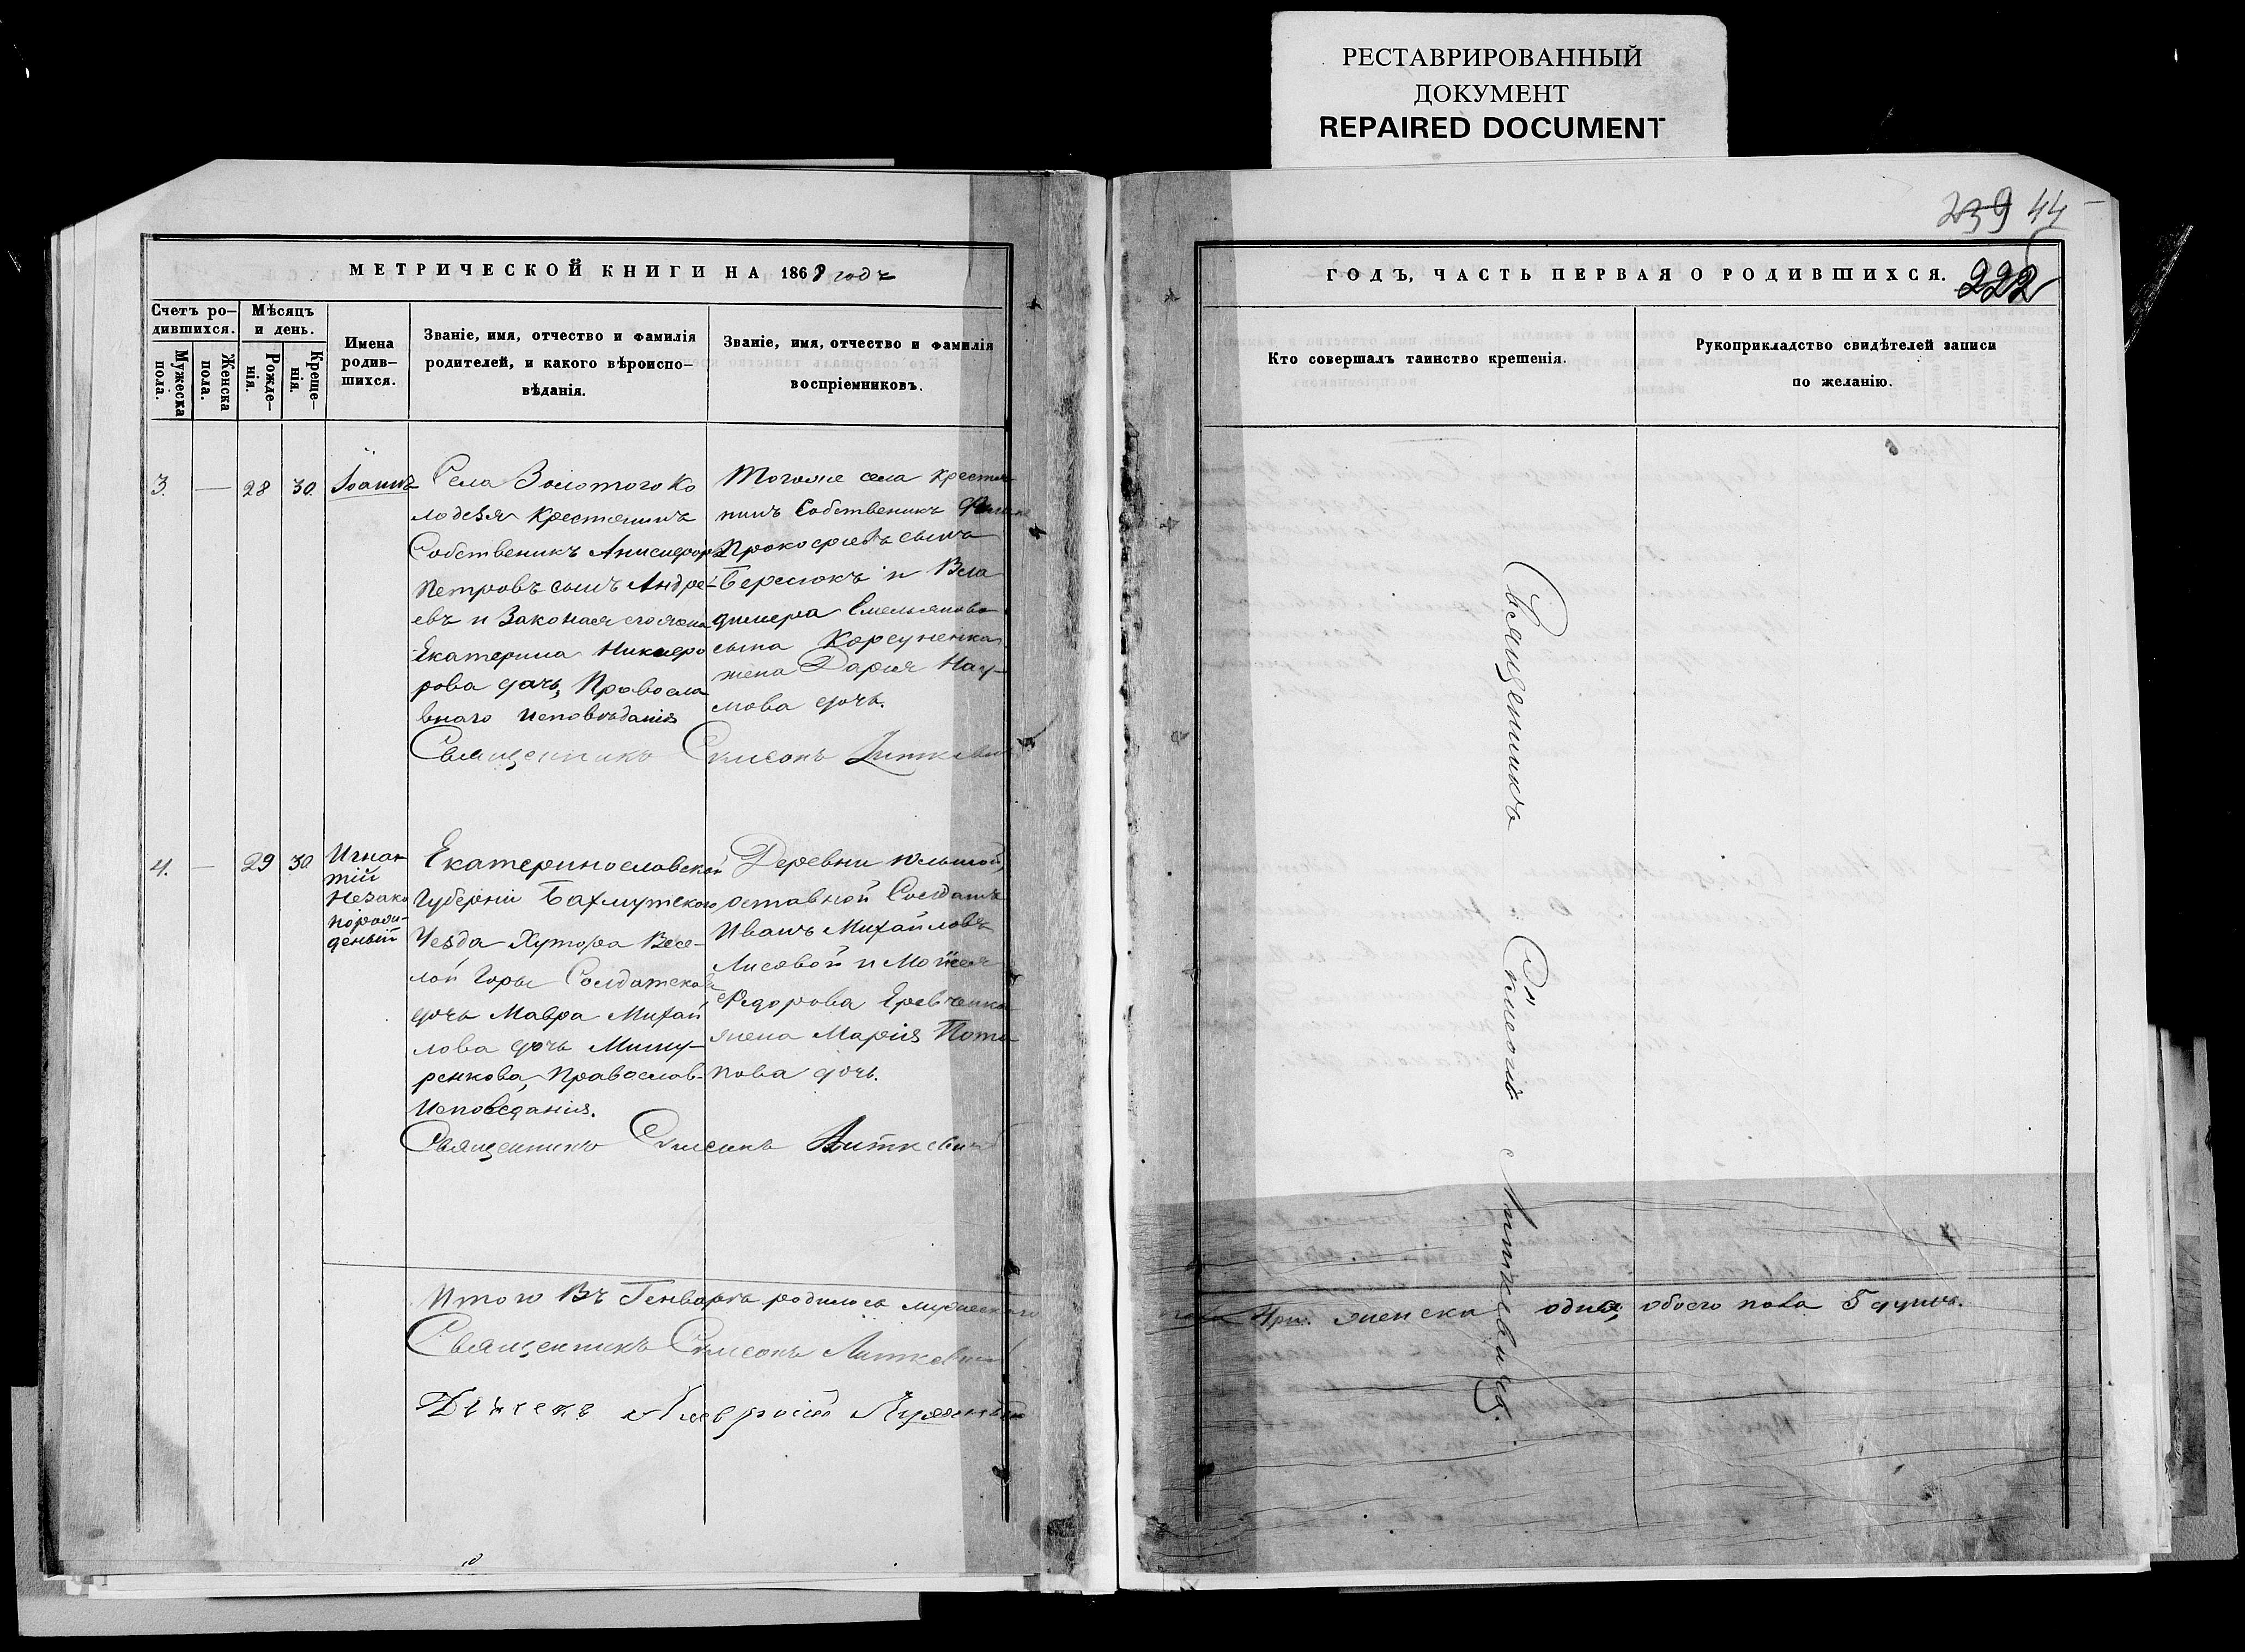 РЕСТАВРИРОВАННЫЙ
ДОКУМЕНТ
REPAIRED DOCUMENT
239 44
МЕТРИЧЕСКОЙ КНИГИ НА 1868 годъ
Счетъ ро-
дившихся.
Мужеска
пола.
Женска
пола.
Мѣсяцъ
и день.
Рожде-
нія.
Креще-
нія.
Имена
родив-
шихся.
Званіе, имя, отчество и фамилія
родителей, и какого вѣроиспо-
вѣданія.
Званіе, имя, отчество и фамилія
воспріемниковъ.
3. — 28 30. Іоаннъ
Села Золотого Ко
лодезя Крестянинъ
Собственикъ Анисифоръ
Петровъ сынъ Андре-
евъ и Законая его жена
Екатерина Никифо
рова дочь, Правосла
внаго Исповѣданія
Тогоже села Крестья
нинъ Собственикъ
Прокофіевъ сынъ
Бересюкъ и Вла
димера Емельянова
сына Корсуненка
жена Дарія Нау-
мова дочь.
Священникъ Симеонъ Литкевичъ
4. — 29 30.
Игна
тій
Незако
норож-
деный
Екатеринославской
Губерніи Бахмутского
Уезда Хутора Весе-
лой Горы Солдатская
дочь Мавра Михай
лова дочь Мишу-
ренкова, Православ-
Исповеданія.
Деревни
отставной Солдатъ
Иванъ Михайловъ
Лисовой и Мойсея
Федорова
жена Марія Пота
пова дочь.
Священникъ Симеонъ Литкевичъ
Итого Въ Генварѣ родилось мужеского
Священникъ Симеонъ Литкевичъ
Дьячекъ
ГОДЪ, ЧАСТЬ ПЕРВАЯ О РОДИВШИХСЯ.
222
Кто совершалъ таинство крещенія.
Рукоприкладство свидѣтелей записи
по желанію.
Священникъ Симеонъ Литкевичъ.
пола 4ри. женска одна, обоего пола 5 душъ.